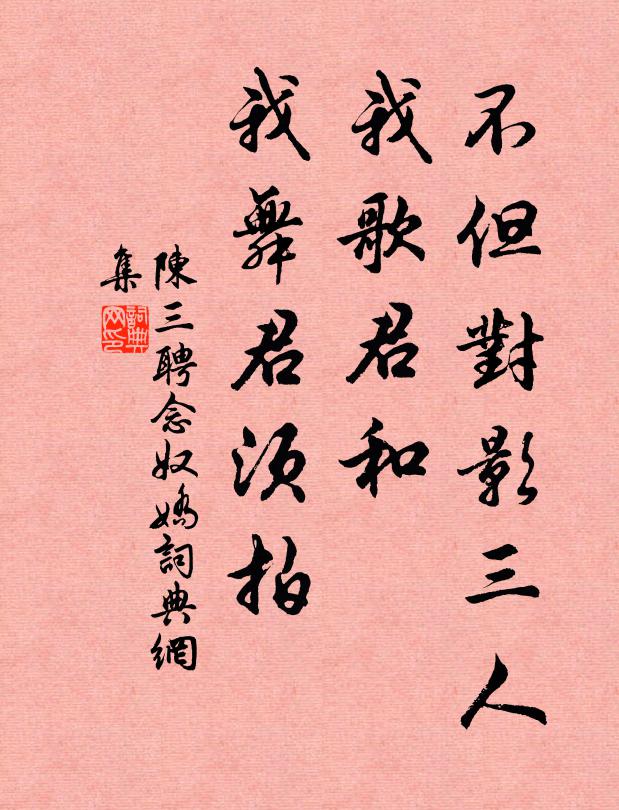 不但對影三人
我歌君和
我舞君須拍
陳三聘念奴嬌詞典網
集
詞典网印